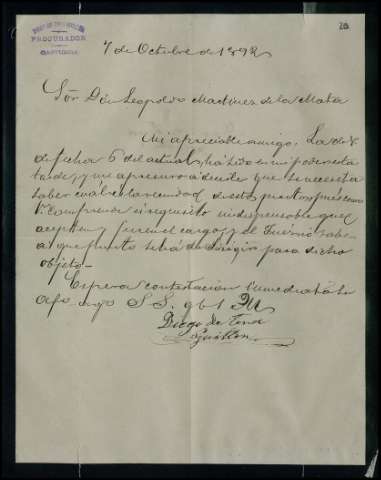 PROCURADOR
7 de Octubre de 1892
Sõr Dõn Leopoldo Martinez de la Mata
Mi apreciable amigo. La de V.
de fecha 6 del actual, ha sido en mi poder esta
tarde, y me apresuro a decirle que se necesita
saber cual es la vecindad de estos puntos pues como
V. comprende es requisito indispensable que
acepten y juren el cargo, y el
a que punto se ha de dirigir para dicho
objeto.
Espera contestacion inmediata su
afo. amgo S. S. q b s m
Diego de Tena
Guillen